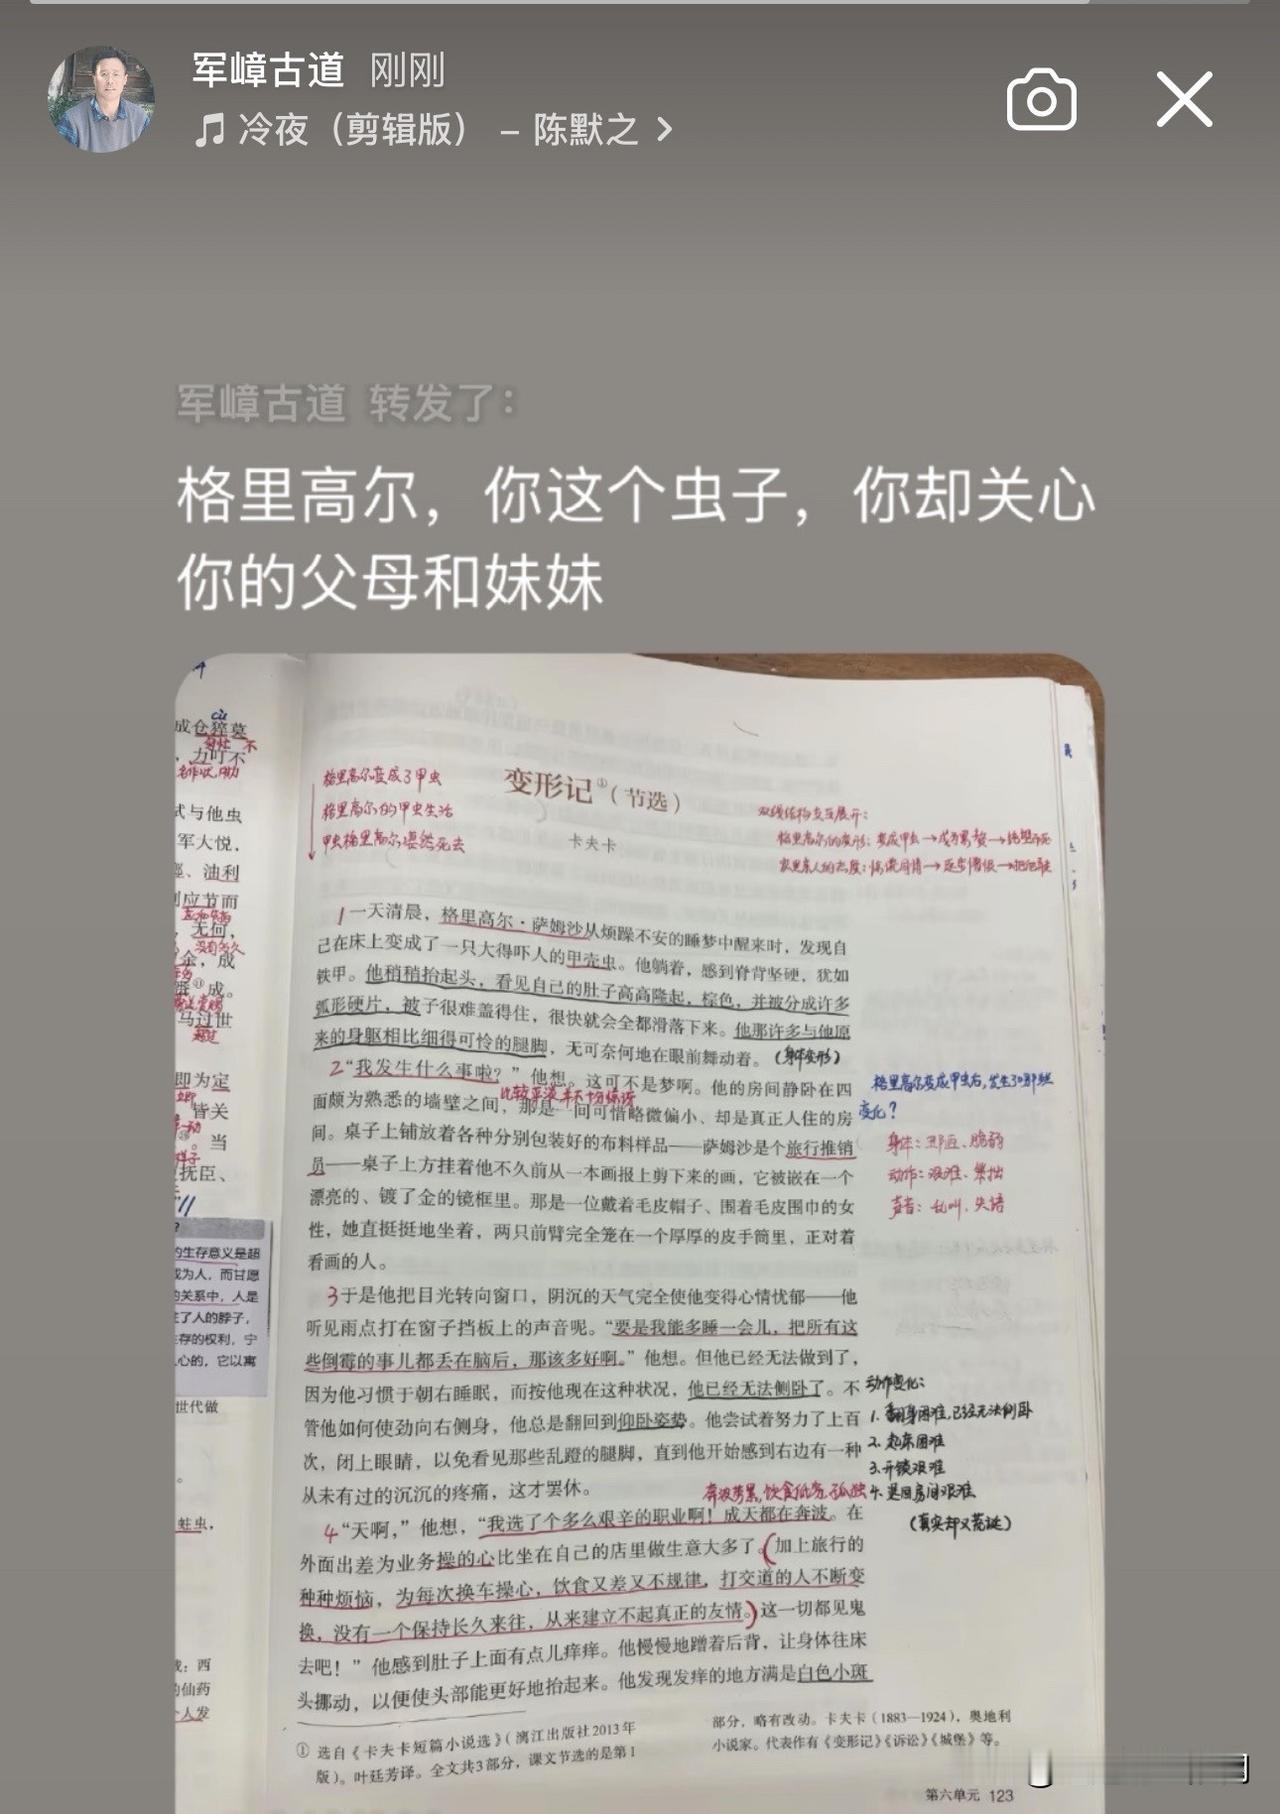 军嶂古道 刚刚
冷夜（剪辑版） – 陈默之
军嶂古道 转发了：
格里高尔，你这个虫子，你却关心
你的父母和妹妹
成仓猝莫
，力叮不
式与他虫
军大悦，
、油利
应节而
，无何，
金，成
成。
马过世
即为定
皆关
。当
抚臣、
的生存意义是超
成为人，而甘愿
的关系中，人是
了人的脖子，
生存的权利，宁
心的，它以寓
世代做
蛀虫，
：西
的仙药
个人发
格里高尔变成了甲虫
格里高尔的甲虫生活
甲虫格里高尔悲惨死去
变形记①（节选）
卡夫卡
双线结构交互展开：
格里高尔的变形：变成甲虫→成为累赘→绝望而死
家里亲人的态度：→逐步憎恨→把他
1一天清晨，格里高尔·萨姆沙从烦躁不安的睡梦中醒来时，发现自
己在床上变成了一只大得吓人的甲壳虫。他躺着，感到脊背坚硬，犹如
铁甲。他稍稍抬起头，看见自己的肚子高高隆起，棕色，并被分成许多
弧形硬片，被子很难盖得住，很快就会全都滑落下来。他那许多与他原
来的身躯相比细得可怜的腿脚，无可奈何地在眼前舞动着。（身体变形）
2“我发生什么事啦？”他想。这可不是梦啊。他的房间静卧在四
比较平淡 并不十分惊讶
面颇为熟悉的墙壁之间，那是一间可惜略微偏小、却是真正人住的房
间。桌子上铺放着各种分别包装好的布料样品——萨姆沙是个旅行推销
员——桌子上方挂着他不久前从一本画报上剪下来的画，它被嵌在一个
漂亮的、镀了金的镜框里。那是一位戴着毛皮帽子、围着毛皮围巾的女
性，她直挺挺地坐着，两只前臂完全笼在一个厚厚的皮手筒里，正对着
看画的人。
格里高尔变成甲虫后，发生了哪些
变化？
身体：脆弱
动作：艰难、笨拙
声音：乱叫、失语
3于是他把目光转向窗口，阴沉的天气完全使他变得心情忧郁——他
听见雨点打在窗子挡板上的声音呢。“要是我能多睡一会儿，把所有这
些倒霉的事儿都丢在脑后，那该多好啊。”他想。但他已经无法做到了，
因为他习惯于朝右睡眠，而按他现在这种状况，他已经无法侧卧了。不
管他如何使劲向右侧身，他总是翻回到仰卧姿势。他尝试着努力了上百
次，闭上眼睛，以免看见那些乱蹬的腿脚，直到他开始感到右边有一种
从未有过的沉沉的疼痛，这才罢休。
动作变化：
1. 翻身困难，已经无法侧卧
2. 起床困难
3. 开锁艰难
4. 退回房间艰难
（真实却又荒诞）
奔波劳累，饮食低劣，孤独
4“天啊，”他想，“我选了个多么艰辛的职业啊！成天都在奔波。在
外面出差为业务操的心比坐在自己的店里做生意大多了。（加上旅行的
种种烦恼，为每次换车操心，饮食又差又不规律，打交道的人不断变
换，没有一个保持长久来往，从来建立不起真正的友情。）这一切都见鬼
去吧！”他感到肚子上面有点儿痒痒。他慢慢地蹭着后背，让身体往床
头挪动，以便使头部能更好地抬起来。他发现发痒的地方满是白色小斑
① 选自《卡夫卡短篇小说选》（漓江出版社2013年
版）。叶廷芳译。全文共3部分，课文节选的是第1
部分，略有改动。卡夫卡（1883—1924），奥地利
小说家。代表作有《变形记》《诉讼》《城堡》等。
第六单元 123